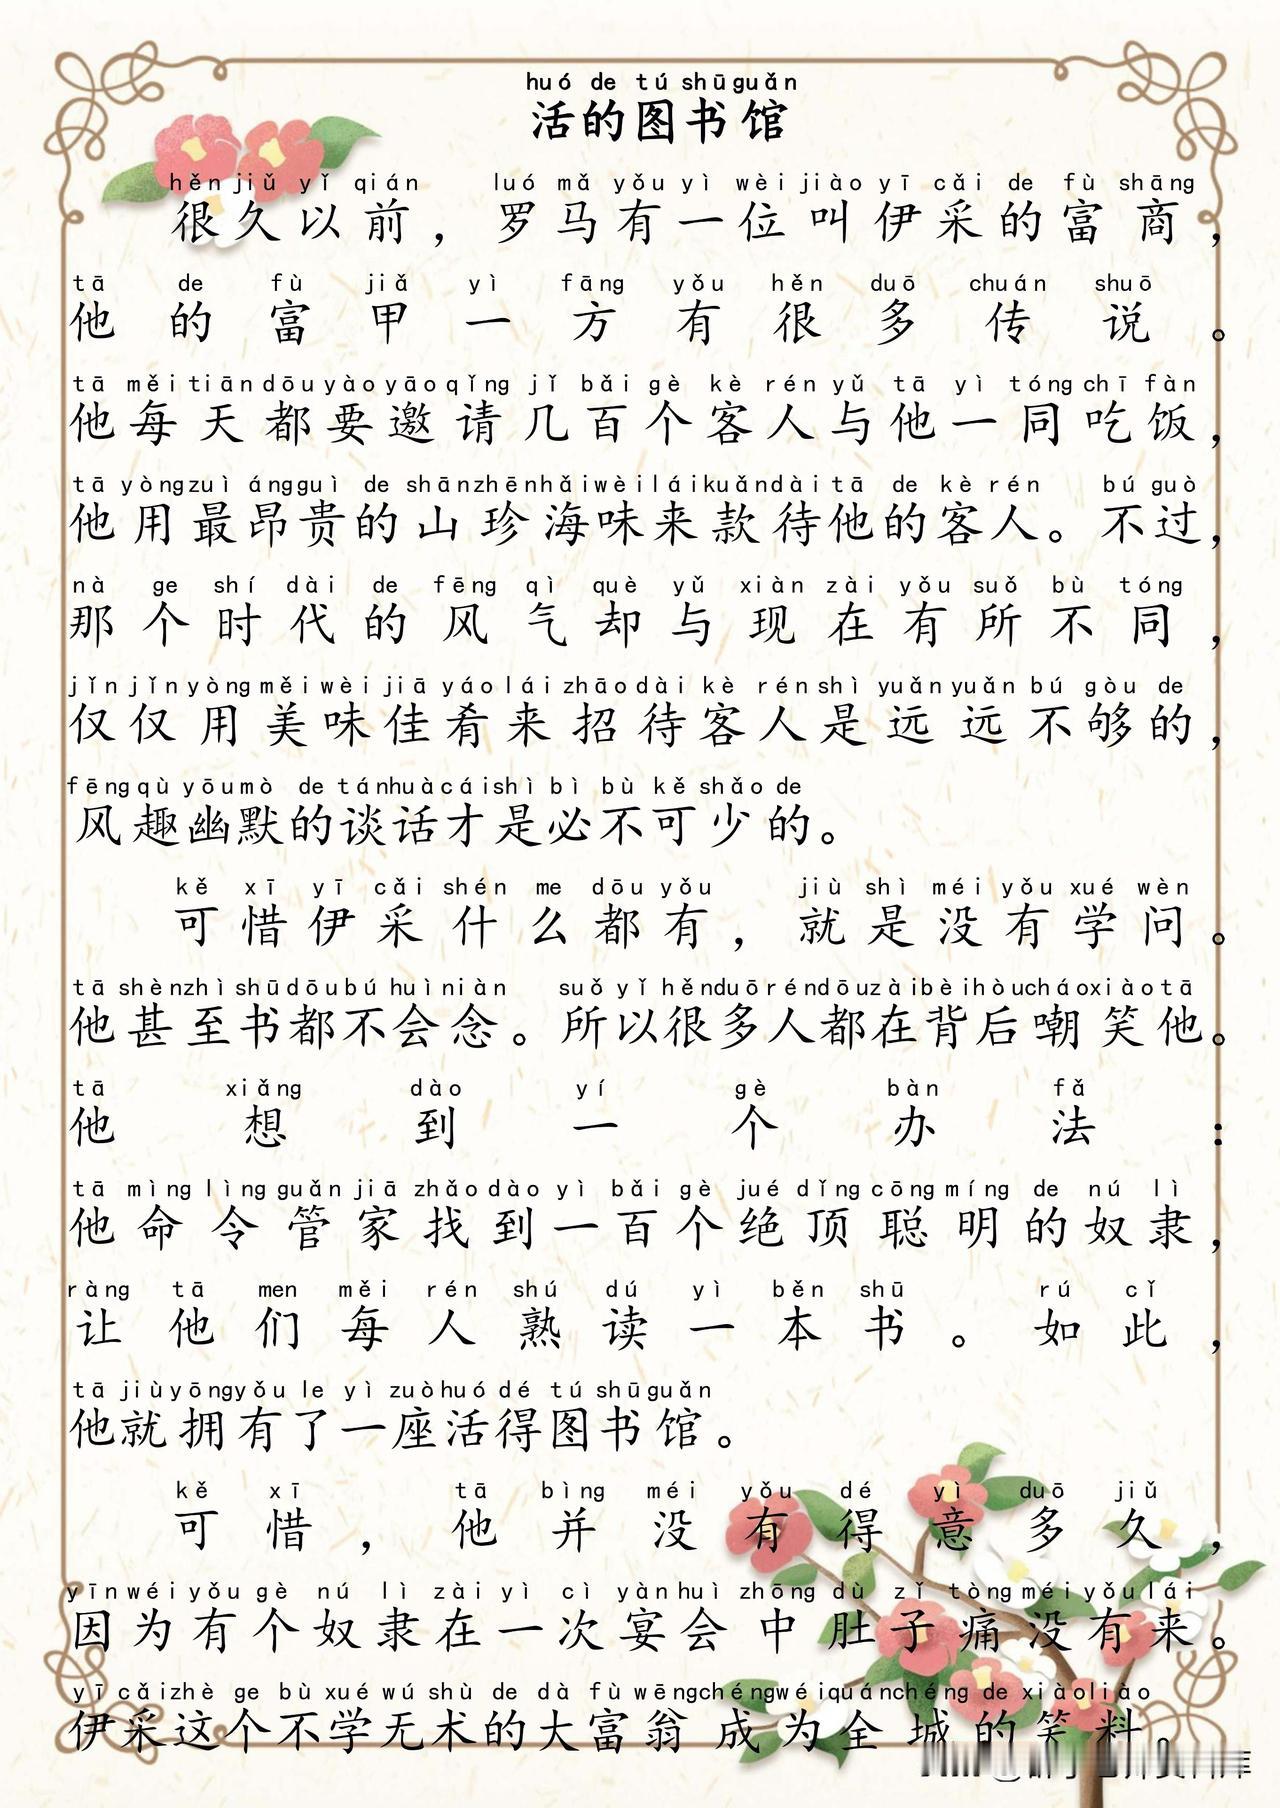 huó de tú shū guǎn
活的图书馆
hěn jiǔ yǐ qián luó mǎ yǒu yì wèi jiào yī cǎi de fù shāng
很久以前，罗马有一位叫伊采的富商，
tā de fù jiǎ yì fāng yǒu hěn duō chuán shuō
他的富甲一方有很多传说。
tā měi tiān dōu yào yāo qǐng jǐ bǎi gè kè rén yǔ tā yì tóng chī fàn
他每天都要邀请几百个客人与他一同吃饭，
tā yòng zuì áng guì de shān zhēn hǎi wèi lái kuǎn dài tā de kè rén bú guò
他用最昂贵的山珍海味来款待他的客人。不过，
nà ge shí dài de fēng qì què yǔ xiàn zài yǒu suǒ bù tóng
那个时代的风气却与现在有所不同，
jǐn jǐn yòng měi wèi jiā yáo lái zhāo dài kè rén shì yuǎn yuǎn bú gòu de
仅仅用美味佳肴来招待客人是远远不够的，
fēng qù yōu mò de tán huà cái shì bì bù kě shǎo de
风趣幽默的谈话才是必不可少的。
kě xī yī cǎi shén me dōu yǒu jiù shì méi yǒu xué wèn
可惜伊采什么都有，就是没有学问。
tā shèn zhì shū dōu bú huì niàn suǒ yǐ hěn duō rén dōu zài bèi hòu cháo xiào tā
他甚至书都不会念。所以很多人都在背后嘲笑他。
tā xiǎng dào yí gè bàn fǎ
他想到一个办法：
tā mìng lìng guǎn jiā zhǎo dào yì bǎi gè jué dǐng cōng míng de nú lì
他命令管家找到一百个绝顶聪明的奴隶，
ràng tā men měi rén shú dú yì běn shū rú cǐ
让他们每人熟读一本书。如此，
tā jiù yōng yǒu le yì zuò huó dé tú shū guǎn
他就拥有了一座活得图书馆。
kě xī tā bìng méi yǒu dé yì duō jiǔ
可惜，他并没有得意多久，
yīn wéi yǒu gè nú lì zài yì cì yàn huì zhōng dù zǐ tòng méi yǒu lái
因为有个奴隶在一次宴会中肚子痛没有来。
yī cǎi zhè ge bù xué wú shù de dà fù wēng chéng wéi quán chéng de xiào liào
伊采这个不学无术的大富翁成为全城的笑料。